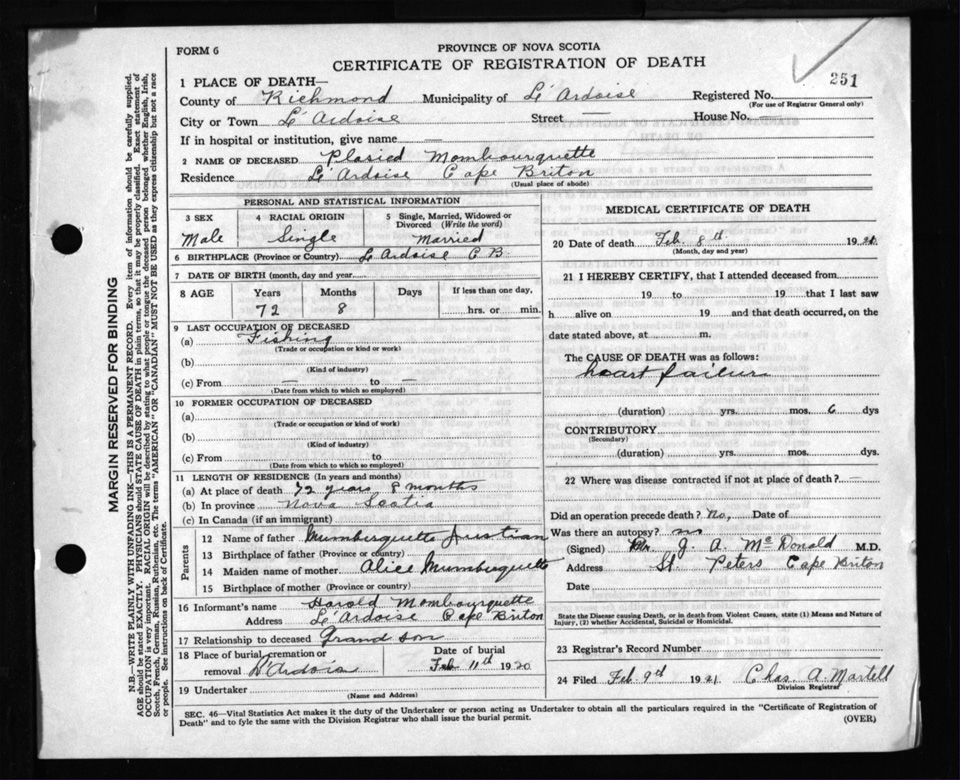 FORM 6
PROVINCE OF NOVA SCOTIA
CERTIFICATE OF REGISTRATION OF DEATH
251
1 PLACE OF DEATH—
County of Richmond Municipality of L'Ardoise Registered No.
(For use of Registrar General only)
City or Town L'Ardoise Street — House No. —
If in hospital or institution, give name —
2 NAME OF DECEASED Plasied Mombourquette
Residence L'Ardoise Cape Briton
(Usual place of abode)
PERSONAL AND STATISTICAL INFORMATION
3 SEX 4 RACIAL ORIGIN 5 Single, Married, Widowed or Divorced (Write the word)
Male Single Married
6 BIRTHPLACE (Province or Country) L'Ardoise C B.
7 DATE OF BIRTH (month, day and year)
8 AGE Years Months Days If less than one day,
72 8 hrs. or min.
9 LAST OCCUPATION OF DECEASED
(a) Fishing
(Trade or occupation or kind or work)
(b)
(Kind of industry)
(c) From — to —
(Date from which to which so employed)
10 FORMER OCCUPATION OF DECEASED
(a)
(Trade or occupation or kind of work)
(b)
(Kind of industry)
(c) From to
(Date from which to which so employed)
11 LENGTH OF RESIDENCE (In years and months)
(a) At place of death 72 years 8 months
(b) In province Nova Scotia
(c) In Canada (if an immigrant)
Parents
12 Name of father Mumburquette Justian
13 Birthplace of father (Province or country)
14 Maiden name of mother Alice Mumbuquette
15 Birthplace of mother (Province or country)
16 Informant's name Harold Mombourquette
Address L'Ardoise Cape Briton
17 Relationship to deceased Grand son
18 Place of burial, cremation or removal Date of burial
Feb 11th 1920
19 Undertaker
(Name and Address)
MEDICAL CERTIFICATE OF DEATH
20 Date of death Feb. 8th 19
(Month, day and year)
21 I HEREBY CERTIFY, that I attended deceased from
19 to 19 that I last saw
h alive on 19 and that death occurred, on the
date stated above, at m.
The CAUSE OF DEATH was as follows:
heart failure
(duration) yrs. mos. 6 dys
CONTRIBUTORY
(Secondary)
(duration) yrs. mos. dys.
22 Where was disease contracted if not at place of death? —
Did an operation precede death? No, Date of
Was there an autopsy? no
(Signed) Dr. J. A. McDonald M.D.
Address St. Peters Cape Briton
Date
State the Disease causing Death, or in death from Violent Causes, state (1) Means and Nature of
Injury, (2) whether Accidental, Suicidal or Homicidal.
23 Registrar's Record Number
24 Filed Feb. 9th 1921 Chas. A. Martell
Division Registrar
SEC. 46—Vital Statistics Act makes it the duty of the Undertaker or person acting as Undertaker to obtain all the particulars required in the "Certificate of Registration of
Death" and to fyle the same with the Division Registrar who shall issue the burial permit.
(OVER)
MARGIN RESERVED FOR BINDING
N.B.—WRITE PLAINLY WITH UNFADING INK—THIS IS A PERMANENT RECORD. Every item of information should be carefully supplied.
AGE should be stated EXACTLY. PHYSICIANS should STATE CAUSE OF DEATH in plain terms, so that it may be properly classified. Exact statement of
OCCUPATION is very important. RACIAL ORIGIN will be described by stating to what people or tongue the deceased person belonged whether English, Irish,
Scotch, French, German, Russian, Ruthenian, etc. The terms "AMERICAN" OR "CANADIAN" MUST NOT BE USED as they express citizenship but not a race
or people. See instructions on back of Certificate.